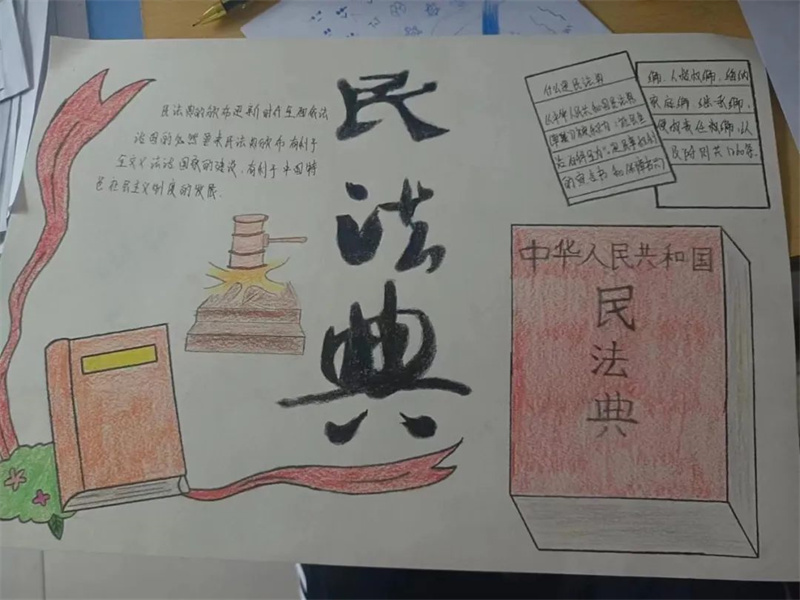 民法典的颁布更新时在全面依法
治国的必然要求民法典颁布有利于
主义法治国家的建设,有利于中国特
色社会主义制度的发展.
民
法
典
什么是民法典
《中华人民共和国民法典》
的宣言书和保障书
编、人格权编、婚姻
家庭编、继承编、
侵权责任权编,以
及附则共1260条.
中华人民共和国
民
法
典